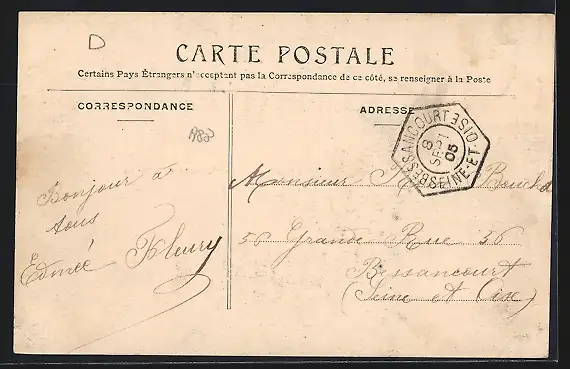 D
CARTE POSTALE
Certains Pays Étrangers n'acceptent pas la Correspondance de ce côté, se renseigner à la Poste
CORRESPONDANCE
ADRESSE
BESSANCOURT
SEINE-ET-OISE
8
SEPT
05
Bonjour à
tous
Edmée Fleury
Monsieur
56 Grande Rue 56
Bessancourt
(Seine et Oise)